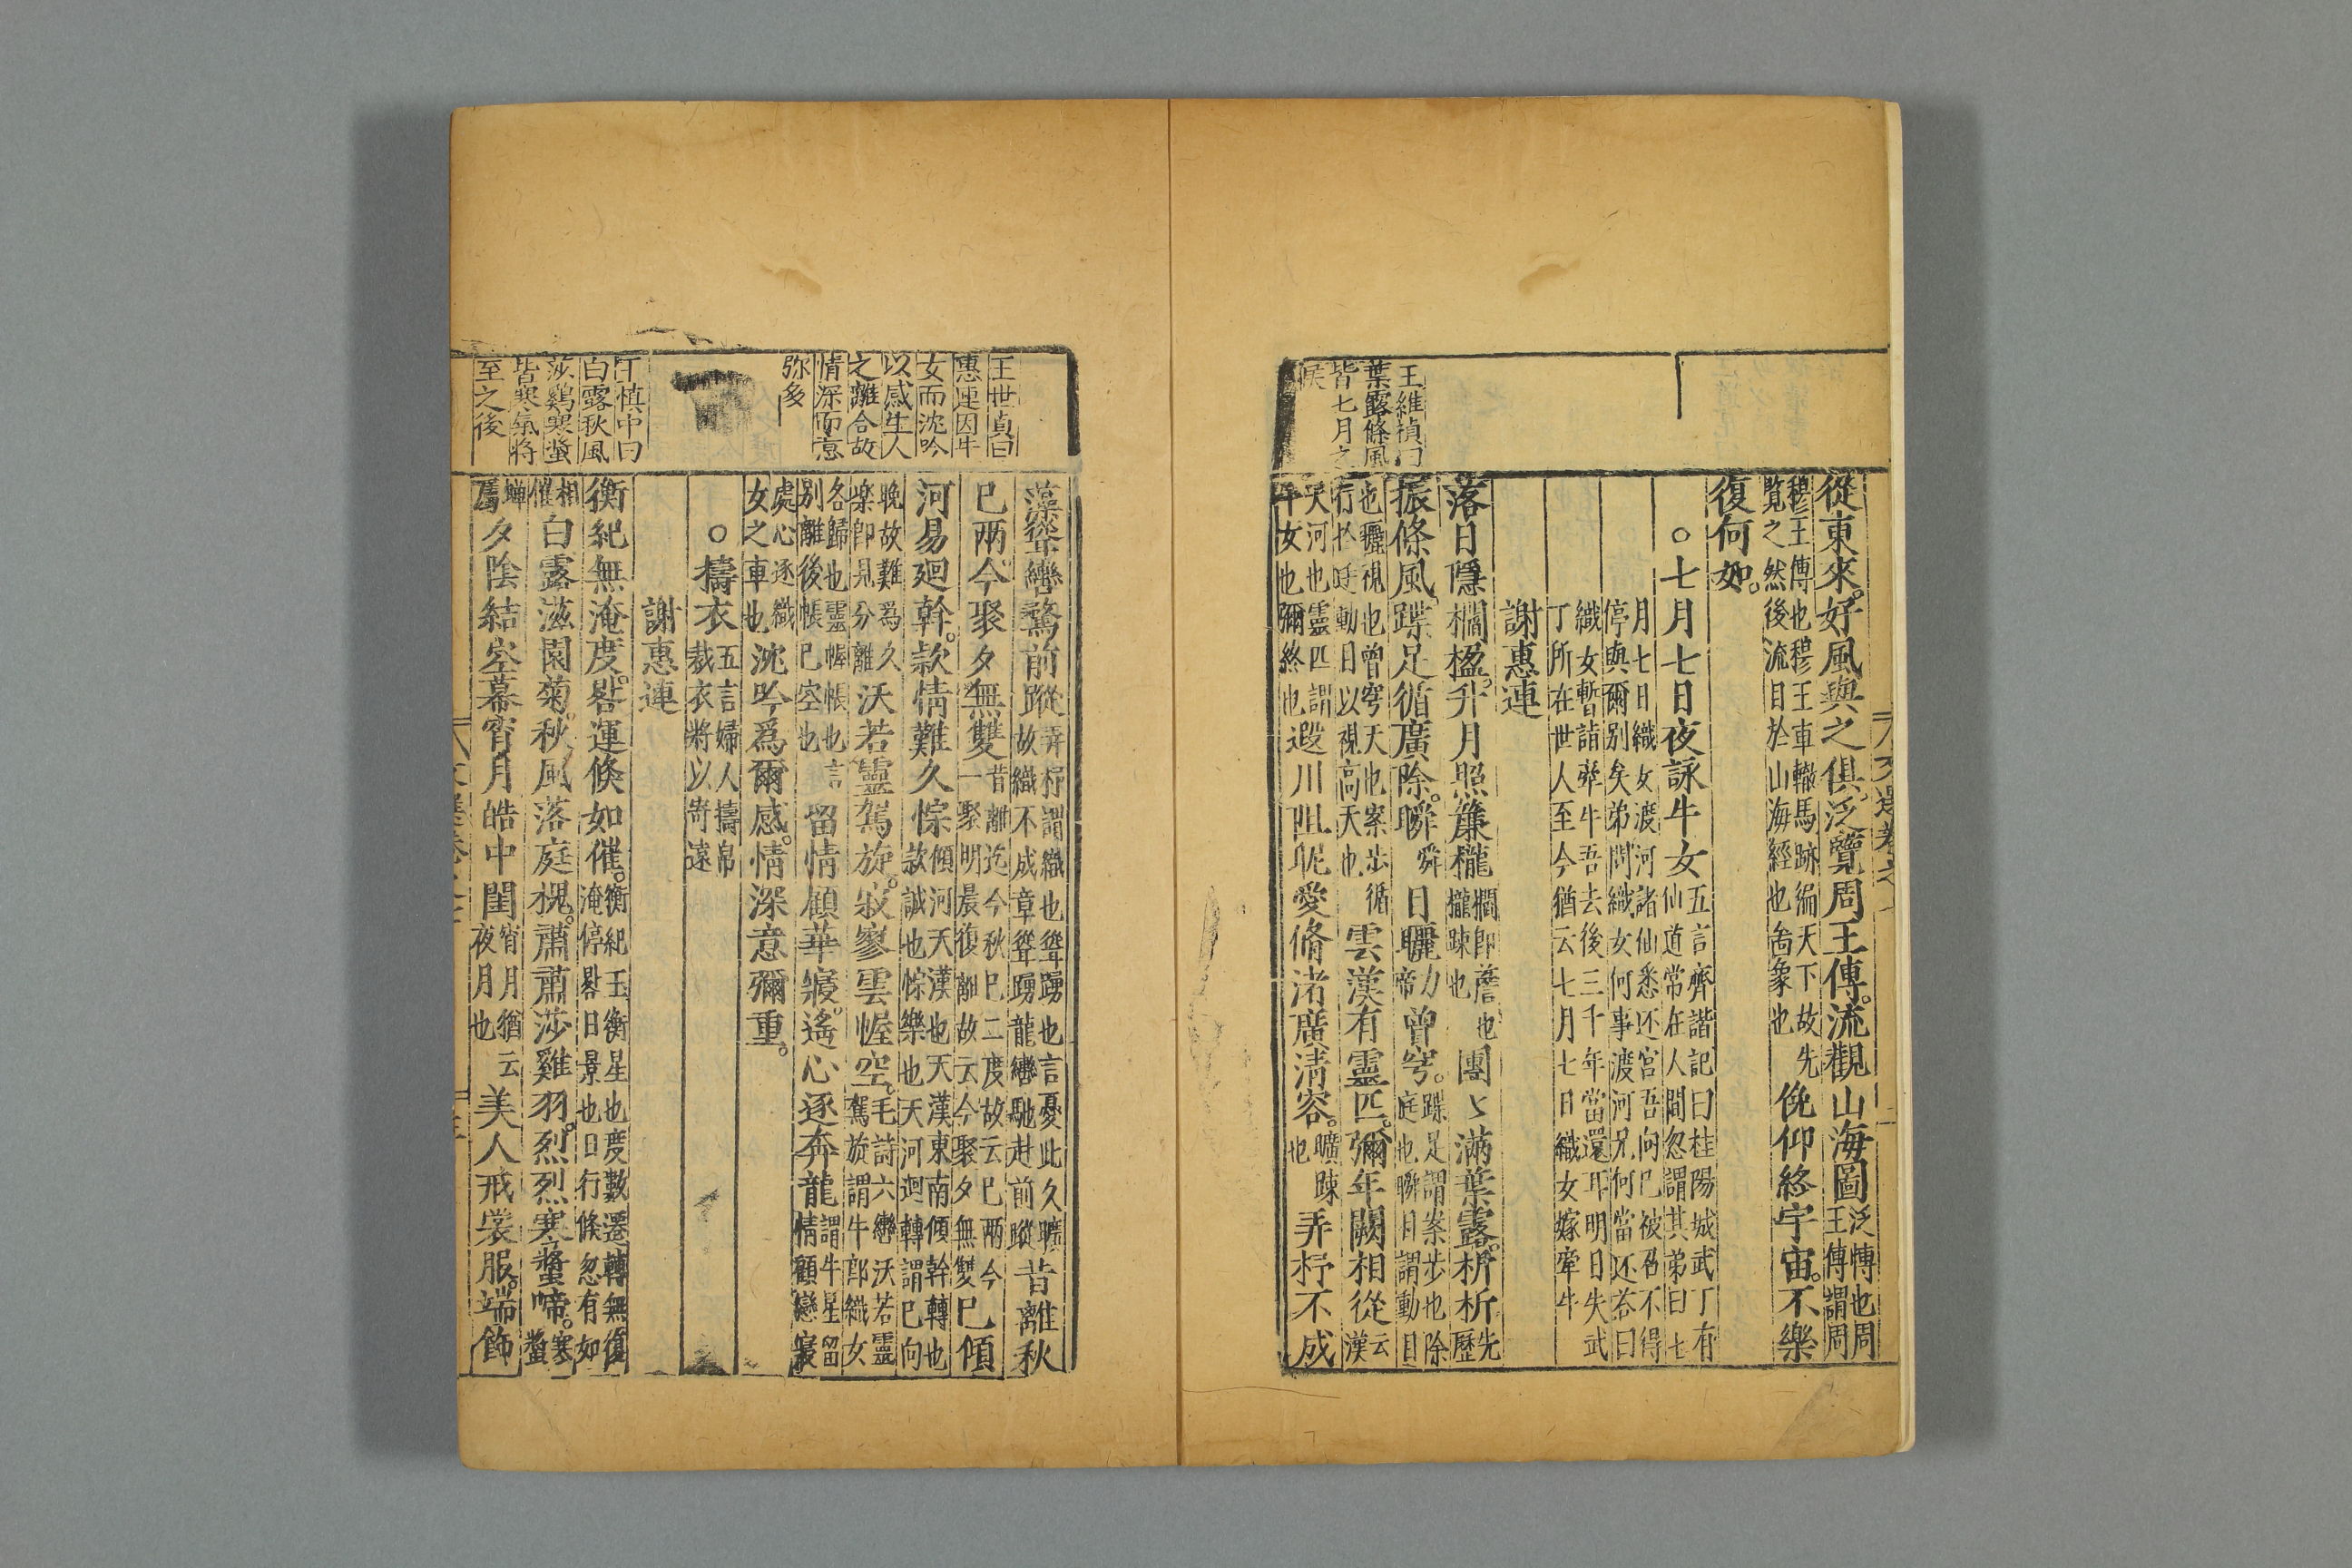 王維禎曰
葉露條風
皆七月之
候
從東來好風與之俱泛覽周王傳流觀山海圖泛慱也周王傳謂周
穆王傳也穆王車轍馬跡徧天下故先覽之然後流目於山海經也啚象也俛仰終宇宙不樂
復何如
○七月七日夜詠牛女五言齊諧記曰桂陽城武丁有仙道常在人間忽謂其弟曰七
月七日織女渡河諸仙悉还宮吾向已被召不得停與爾別矣弟問織女何事渡河兄何當还荅曰
織女暫詣牽牛吾去後三千年當還耳明日失武丁所在世人至今猶云七月七日織女嫁牽牛
謝惠連
落日隱櫩楹升月照簾櫳櫩即簷也櫳踈也團〻滿葉露析析先歷
振條風蹀足循廣除瞬舜日矖力帝曾穹蹀足謂案步也除庭也瞬目謂動目
也矖視也曾穹天也案步循行於庭動目以視高天也雲漢有靈匹彌年闕相從云漢
天河也靈匹謂牛女也彌終也遐川阻昵愛脩渚廣清容曠踈也弄杼不成
王世貞曰
惠連因牛
女而沈吟
以感生人
之離合故
情深而意
弥多
王慎中曰
白露秋風
莎鷄寒螿
皆寒氣將
至之後
藻聳轡鶩前蹤弄杼謂織也聳踴也言憂此久曠故織不成章聳踴龍轡馳赴前蹤昔離秋
已兩今聚夕無雙昔離迄今秋已二度故云已兩今一聚明晨復離故云今聚夕無雙已傾
河易廻斡款情難久悰傾河天漢也天漢東南傾斡轉也款誠也悰樂也天河迴轉謂已向
晚故難爲久樂即見分離沃若靈駕旋寂寥雲幄空毛詩六轡沃若靈駕旋謂牛郎織女
各歸也雲幄帳也言別離後帳已空也留情顧華寢遙心逐奔龍謂牛星留情顧戀寢
處心逐織女之車也沈吟爲爾感情深意彌重
○擣衣五言婦人擣帛裁衣將以寄遠
謝惠連
衡紀無淹度晷運倐如催衡紀玉衡星也度數遷轉無復淹停晷日景也日行倐忽有如
相催白露滋園菊秋風落庭槐肅肅莎雞羽烈烈寒螿啼寒螿
蟬爲夕陰結空幕宵月皓中閨宵月猶云夜月也美人戒裳服端飾